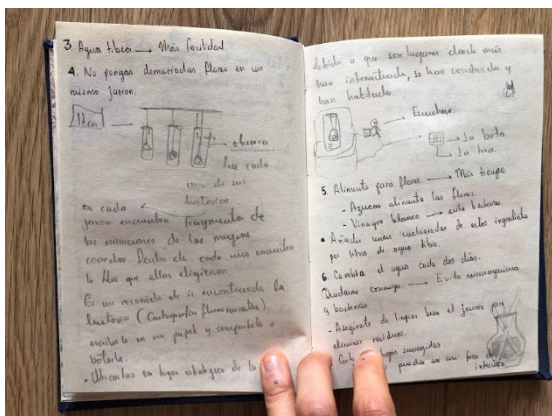 3. Agua tibia → Más facilidad
4. No pongas demasiadas flores en un
mismo jarron.
Idea
observa
los cada
uno de sus
historias
en cada
jarron encuentra fragmento de
las emociones de las mujeres
Dentro de cada uno encuentra
la flor que ellas eligieron
Es un recorrido de ir encontrando la
historia (Cartografía
en un papel y
botarla.
- Ubicarlas en lugar estrategico de la
debido a que son lugares donde más
han interactuado, se han construido y
han habitado.
Escuchar
→ La bota
→ La tira.
5. Alimento para flores → Más tiempo
- Azucar alimenta las flores.
- Vinagre blanco → evita bacterias.
• Añadir unas cucharadas de estos ingredientes
por litros de agua tibia.
6. Cambia el agua cada dos días.
→ Evita microorganismos
y bacterias
- Asegurate de limpiar bien el jarron para
eliminar residuos.
- hojas sumergidas.
pueden ser un foco de